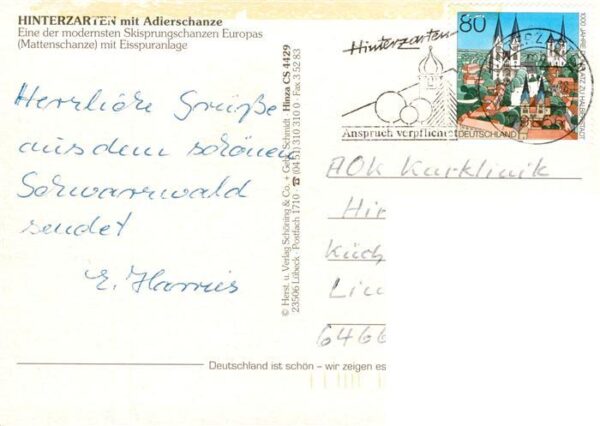 HINTERZARTEN mit Adlerschanze
Eine der modernsten Skisprungschanzen Europas
(Mattenschanze) mit Eisspuranlage
Herrliche Grüße
aus dem schönen
Schwarzwald
sendet
E. Harries
© Herst. u. Verlag Schöning & Co. + Gebr. Schmidt · Hinza CS 4429
23506 Lübeck · Postfach 1710 · ☎ (04 51) 310 310 0 · Fax 3 52 83
Hinterzarten
Anspruch verpflichtet
80
1000 JAHRE DOMPLATZ ZU HALBERSTADT
DEUTSCHLAND
AOK Kurklinik
Hir
Küch
Lin
6466
Deutschland ist schön – wir zeigen es